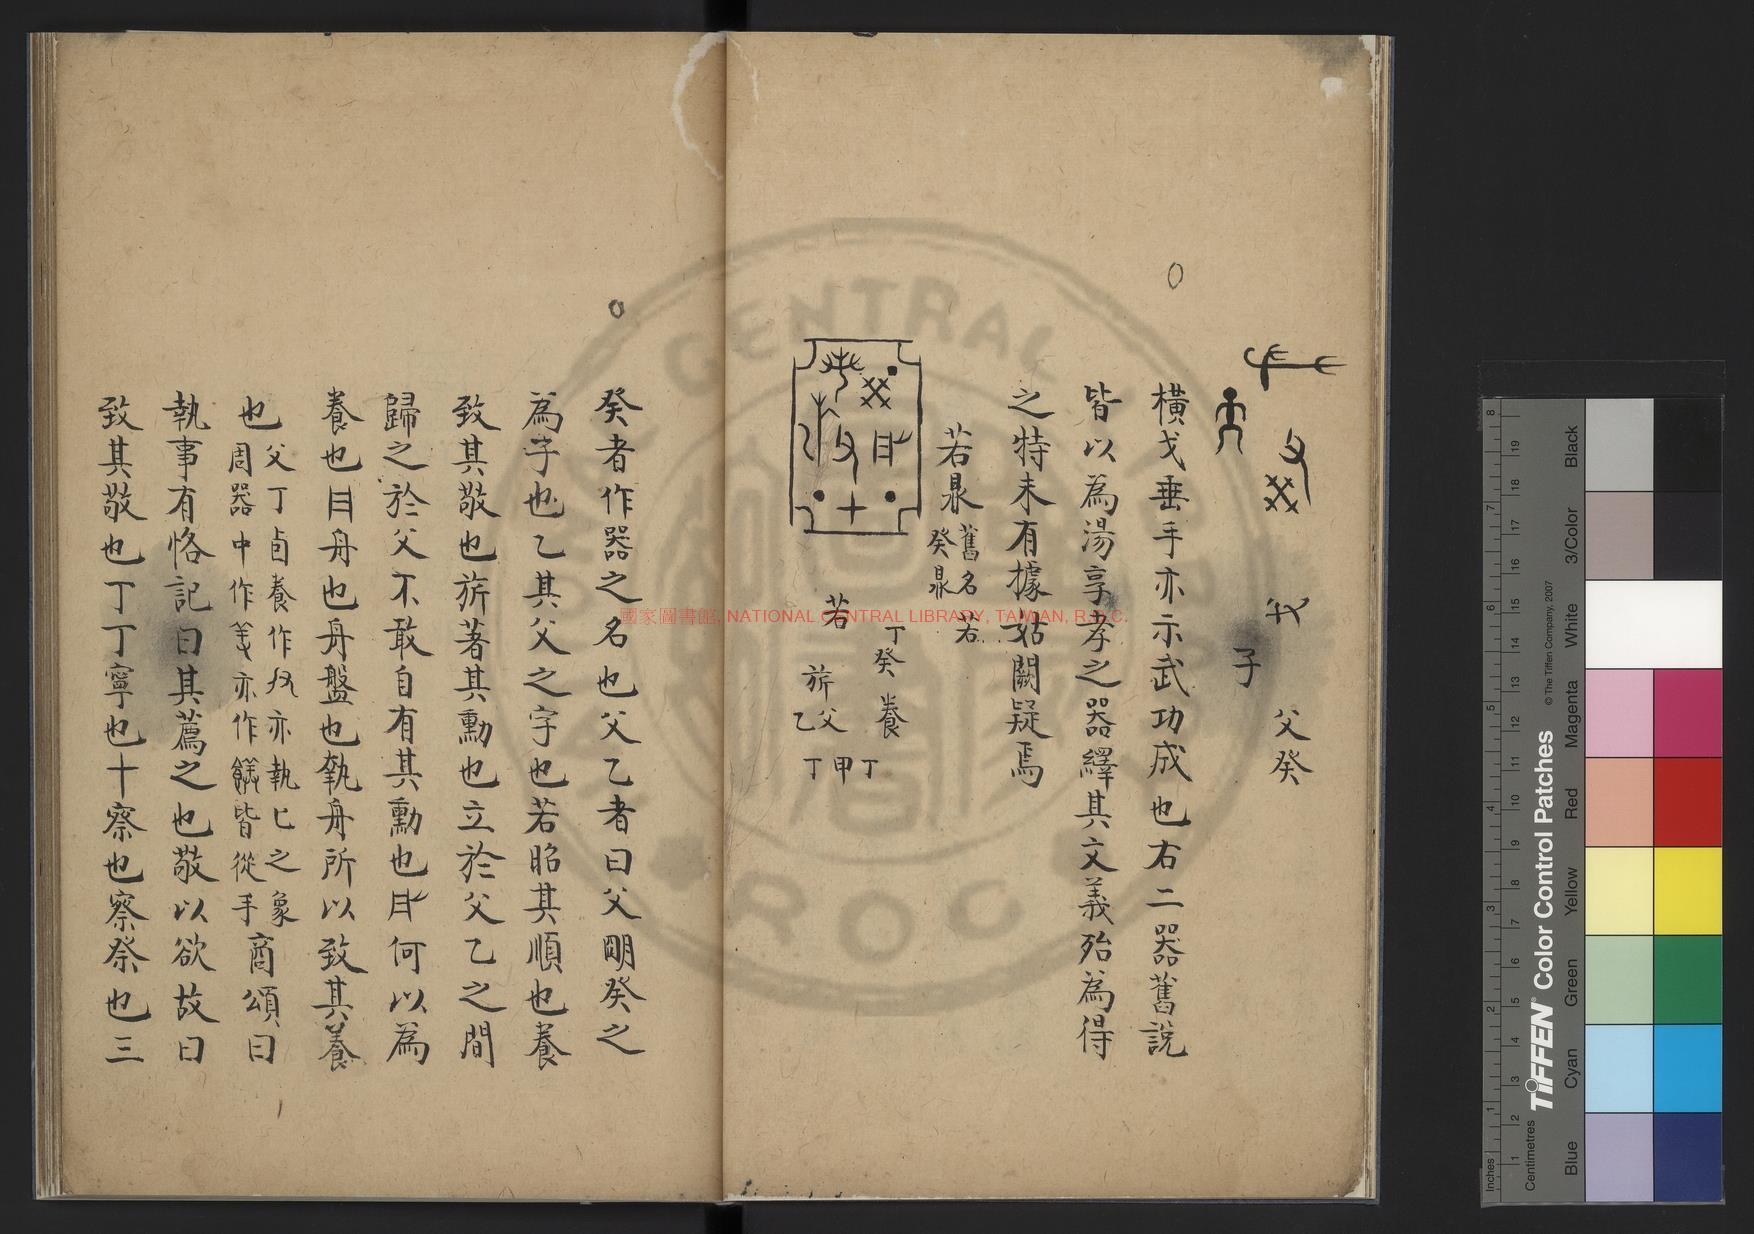 戈 父癸
子
橫戈垂手亦示武功成也右二器舊說
皆以為湯享孝之器繹其文義殆為得
之特未有據姑闕疑焉
若鼎 舊名若癸鼎
丁癸養丁
若 甲
旂父乙丁
癸者作器之名也父乙者曰父明癸之
為字也乙其父之字也若昭其順也養
致其敬也旂著其勳也立於父乙之間
歸之於父不敢自有其勳也 何以為
養也 舟也舟盤也執舟所以致其養
也父丁卣養作 亦執匕之象周器中作羞亦作饈皆從手商頌曰
執事有恪記曰其薦之也敬以欲故曰
致其敬也丁丁寧也十察也察祭也三
國家圖書館, NATIONAL CENTRAL LIBRARY, TAIWAN, R.O.C.
CENTRAL
ROC
TIFFEN® Color Control Patches
© The Tiffen Company, 2007
Inches
Centimetres
Blue
Cyan
Green
Yellow
Red
Magenta
White
3/Color
Black